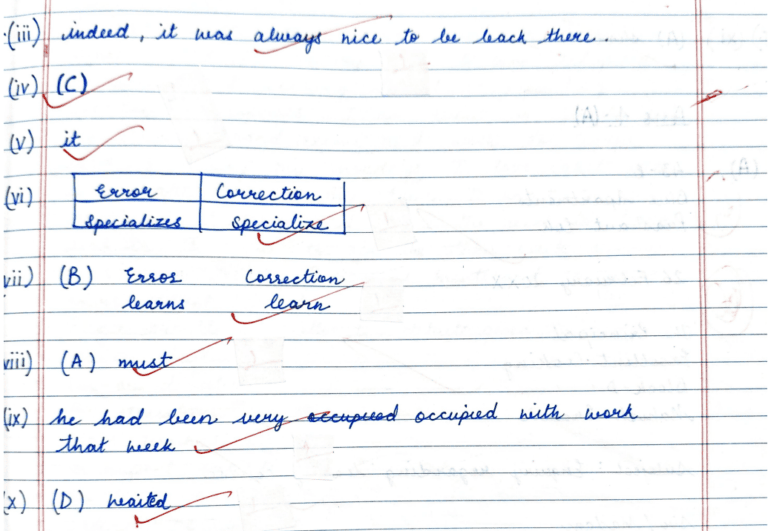 (iii) indeed, it was always nice to be back there.
(iv) (C)
(v) it
(vi) Error Correction
Specializes specialize
vii) (B) Error Correction
learns learn
viii) (A) must
(ix) he had been very occupied with work
that week
x) (D) waited